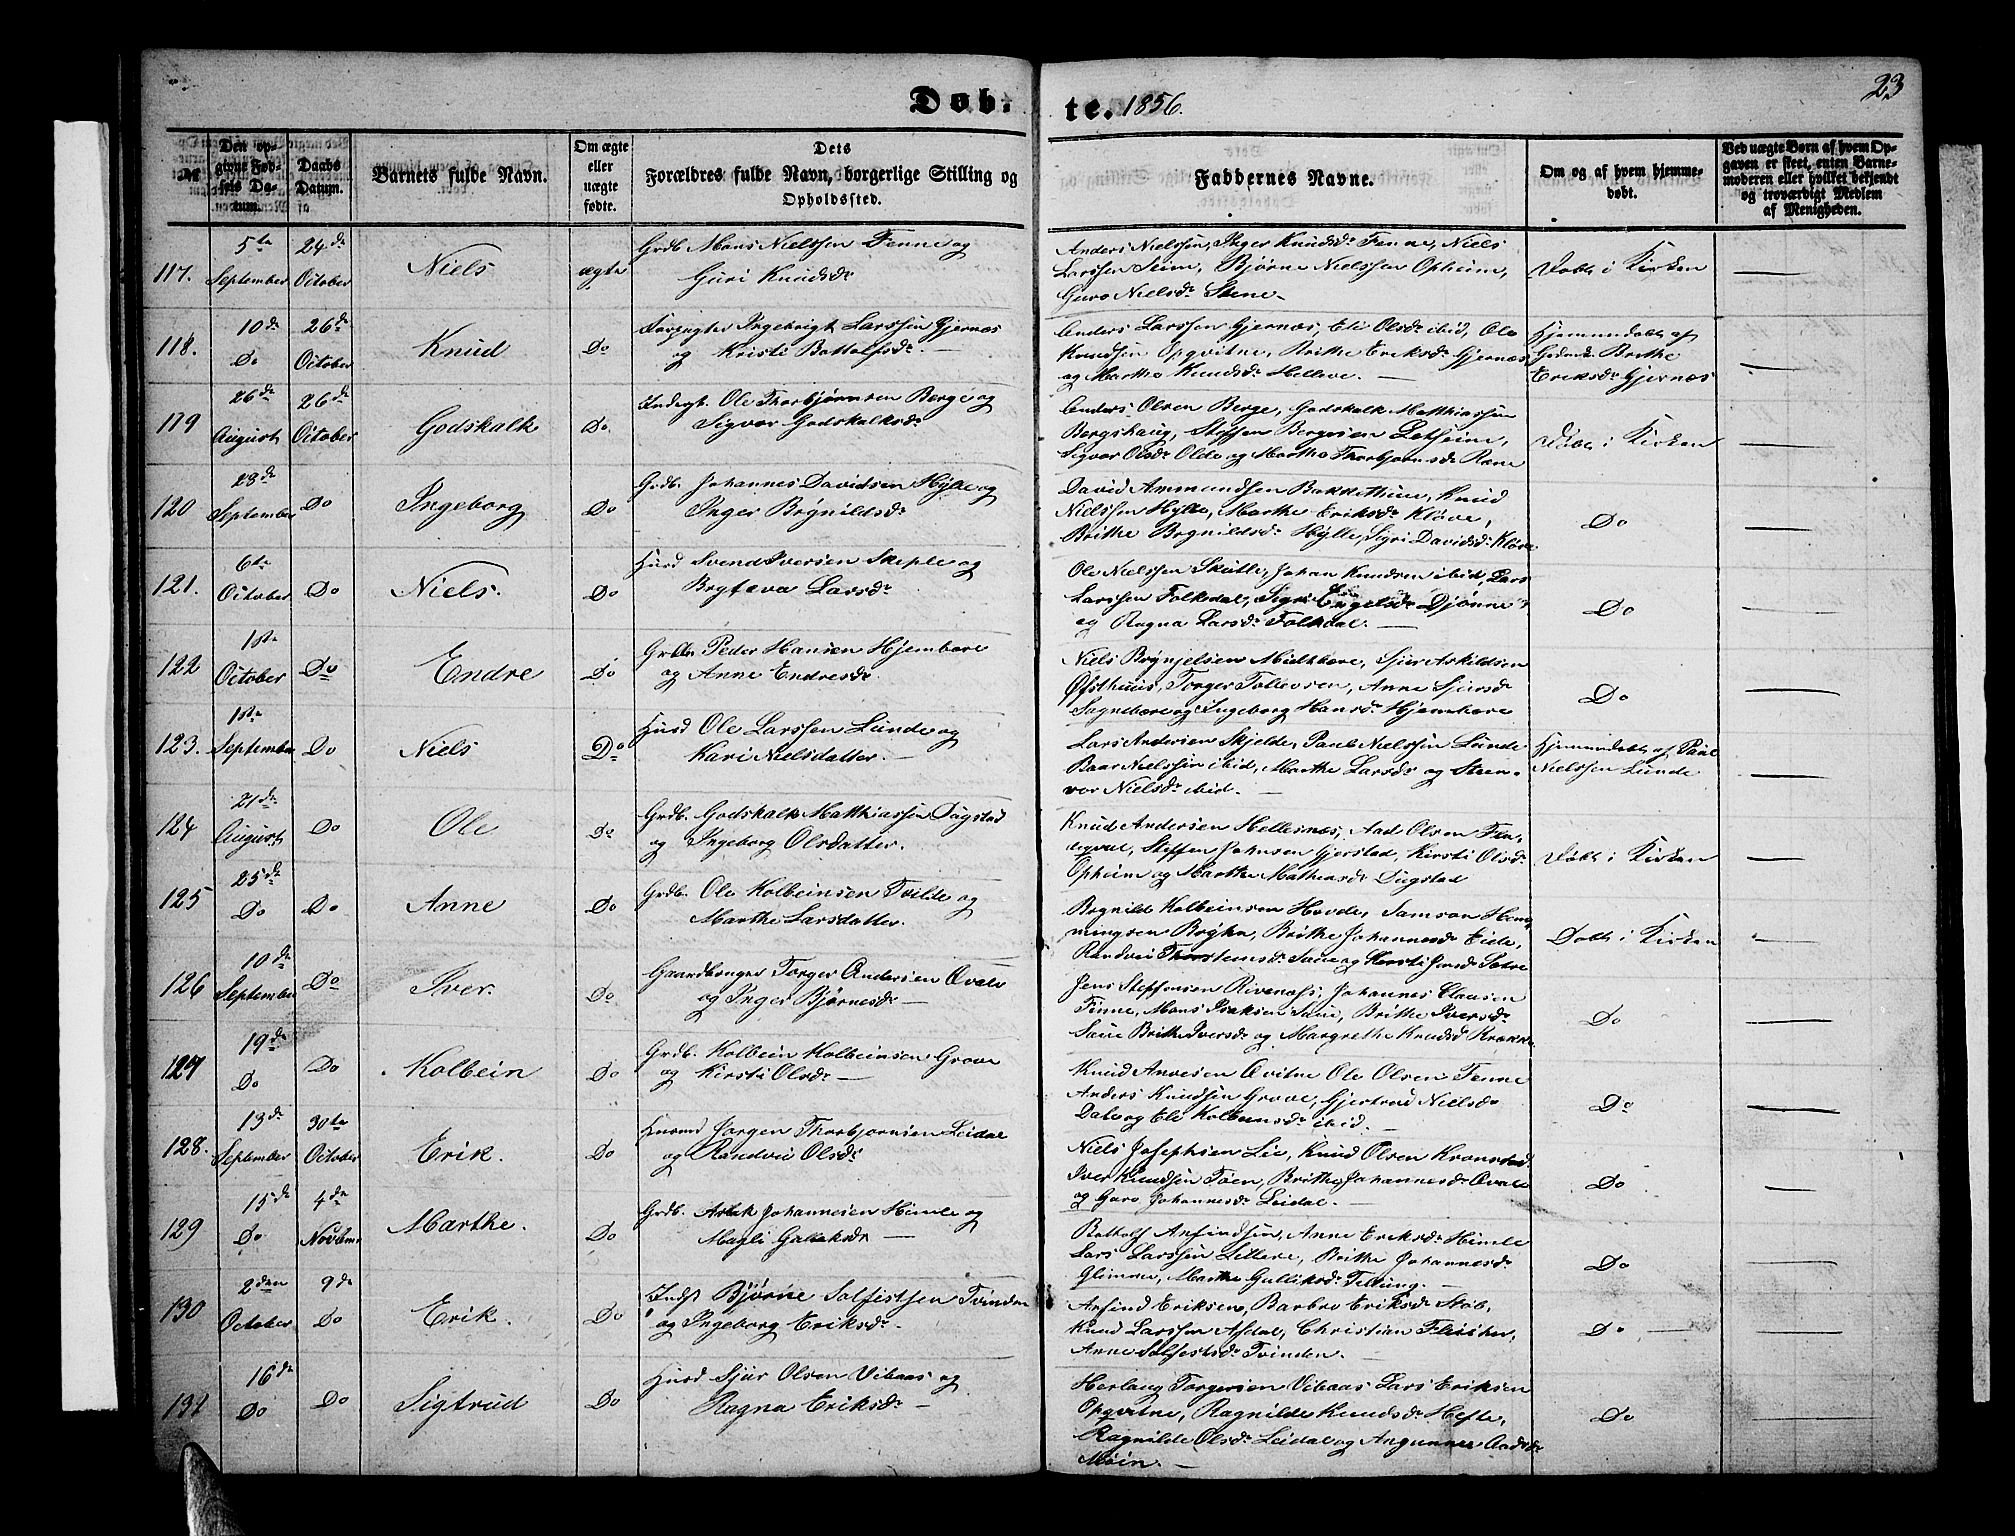 Døb-
te. 1856.
23
№
Den opgivne Fødsels Datum.
Daabs Datum.
Barnets fulde Navn.
Om ægte eller uægte fødte.
Dets
Forældres fulde Navn, borgerlige Stilling og
Opholdssted.
Faddernes Navne.
Om og af hvem hjemmedøbt.
Ved uægte Børn af hvem Opgaven er skeet, enten Barnemoderen eller hvilket bekjendt og troværdigt Medlem af Menigheden.
117. 5te September 24de October Niels ægte
Grdb. Mons Nielssen Fenne og
Guri Knudsdr
Anders Nielssen, Inger Knudsdr Fenne, Niels
Larssen Seim, Bjørne Nielssen Opheim,
Guro Nielsdr Stene.
Døbt i Kirken
118. 10de Do 26de October Knud Do
Forpagter Ingebrigt Larssen Gjernæs
og Kristi Bottolfsdr
Anders Larssen Gjernæs, Eli Olsdr ibid, Ole
Knudsen Opqvitne, Brithe Eriksdr Gjernæs
og Marthe Knudsdr Helleve.
Hjemmedøbt af
Brithe
Eriksdr Gjernæs
119 26de August 26de October Godskalk Do
Inderst. Ole Thorbjørnsen Berge og
Sigvor Godskalksdr
Anders Olsen Berge, Godskalk Matthiassen
Bergshaug, Steffen Bergesen Letheim,
Sigvor Olsdr Olde og Marthe Thorbjørnsdr Rene
Døbt i Kirken
120 28de September Do Ingeborg Do
Grdb. Johannes Davidsen Hylle og
Inger Brynildsdr
David Ammundsen Bakkethun, Knud
Nielssen Hylle, Marthe Eriksdr Kløve,
Brithe Brynildsdr Hylle, Sigri Davidsdr Kløve
Do
121. 6te October Do Niels. Do
Husd Svend Iversen Skiple og
Brytteva Larsdr
Ole Nielssen Skutle, Johan Knudsen ibid, Lars
Larssen Folkedal, Sigri Engelsdr Djønne
og Ragna Larsdr Folkedal.
Do
122 1ste October Do Endre Do
Grdbr Peder Hansen Hjembore
og Anne Endresdr
Niels Brynjelsen Midtbøre, Sjur Askildsen
Øfsthuus, Torger Tollevsen, Anne Sjursdr
Sagnebøre og Ingeborg Hansdr Hjembøre
Do
123. 1ste September Do Niels Do
Husd Ole Larssen Lunde og
Kari Nielsdatter.
Lars Andersen Skjelde, Paul Nielssen Lunde
Baar Nielssen ibid, Marthe Larsdr og Steen-
vor Nielsdr ibid.
Hjemmedøbt af Paul
Nielssen Lunde
124 21de August Do Ole Do
Grdb. Godskalk Matthiassen Dugstad
og Ingeborg Olsdatter.
Knud Andersen Hellesnæs, Aad Olsen Fen-
Steffen Johnsen Gjerstad, Kirsti Olsdr
Opheim og Marthe Mathiasdr Dugstad
Døbt i Kirken
125 25de Do Do Anne Do
Grdb. Ole Kolbeinsen Tvilde og
Marthe Larsdatter.
Brynild Kolbeinsen Hovde, Samson Hem-
mingsen Bryhn, Brithe Johannesdr Eide,
Randvei Thorsteinsdr Saue og Kirsti Jensdr Sætre
Døbt i Kirken
126 10de September Do Iver. Do
Gaardbruger Torger Andersen Qvale
og Inger Bjørnesdr
Jens Steffensen Rivenæs, Johannes Claasen
Finne, Mons Isaksen Saue, Brithe Iversdr
Saue Brithe Iversdr og Margrethe Knudsdr
Do
127 19de Do Do Kolbein Do
Grdb. Kolbein Kolbeinsen Grove
og Kirsti Olsdr
Knud Anvesen Qvitne Ole Olsen Fenne
Anders Knudsen Grove, Gjertrud Nielsdr
Dale og Eli Kolbeinsdr ibid.
Do
128. 13de September 30te October Erik. Do
Husmd Jørgen Thorbjørnsen Leidal
og Randvei Olsdr
Niels Josephsen Lie, Knud Olsen Kronstad
Iver Knudsen Tøen, Brithe Johannesdr Qvale
og Guro Johannesdr Leidal.
Do
129 15de Do 4de Novbmr Marthe. Do
Grdb. Aslak Johannesen Himle og
Magli Gulleiksdr
Bottolf Anfindsen, Anne Eriksdr Himle
Lars Larssen Lettere, Brithe Johannesdr
Glimme, Marthe Gulliksdr Tellung.
Do
130 2den October 9de Do Erik. Do
Indst Bjørne Solfestsen Tvinden
og Ingeborg Eriksdr.
Anfind Eriksen, Barbro Eriksdr Støb,
Knud Larssen Afdal, Christian Fleischer,
Anne Solfestsdr Tvinden.
Do
131 16de Do Do Sigtrud Do
Husd Sjur Olsen Vibaas og
Ragna Eriksdr
Herlaug Torgersen Vibaas Lars Eriksen
Opqvitne, Ragnilde Knudsdr Hefte,
Ragnilde Olsdr Leidal og Angunna Aadsdr
Møin.
Do